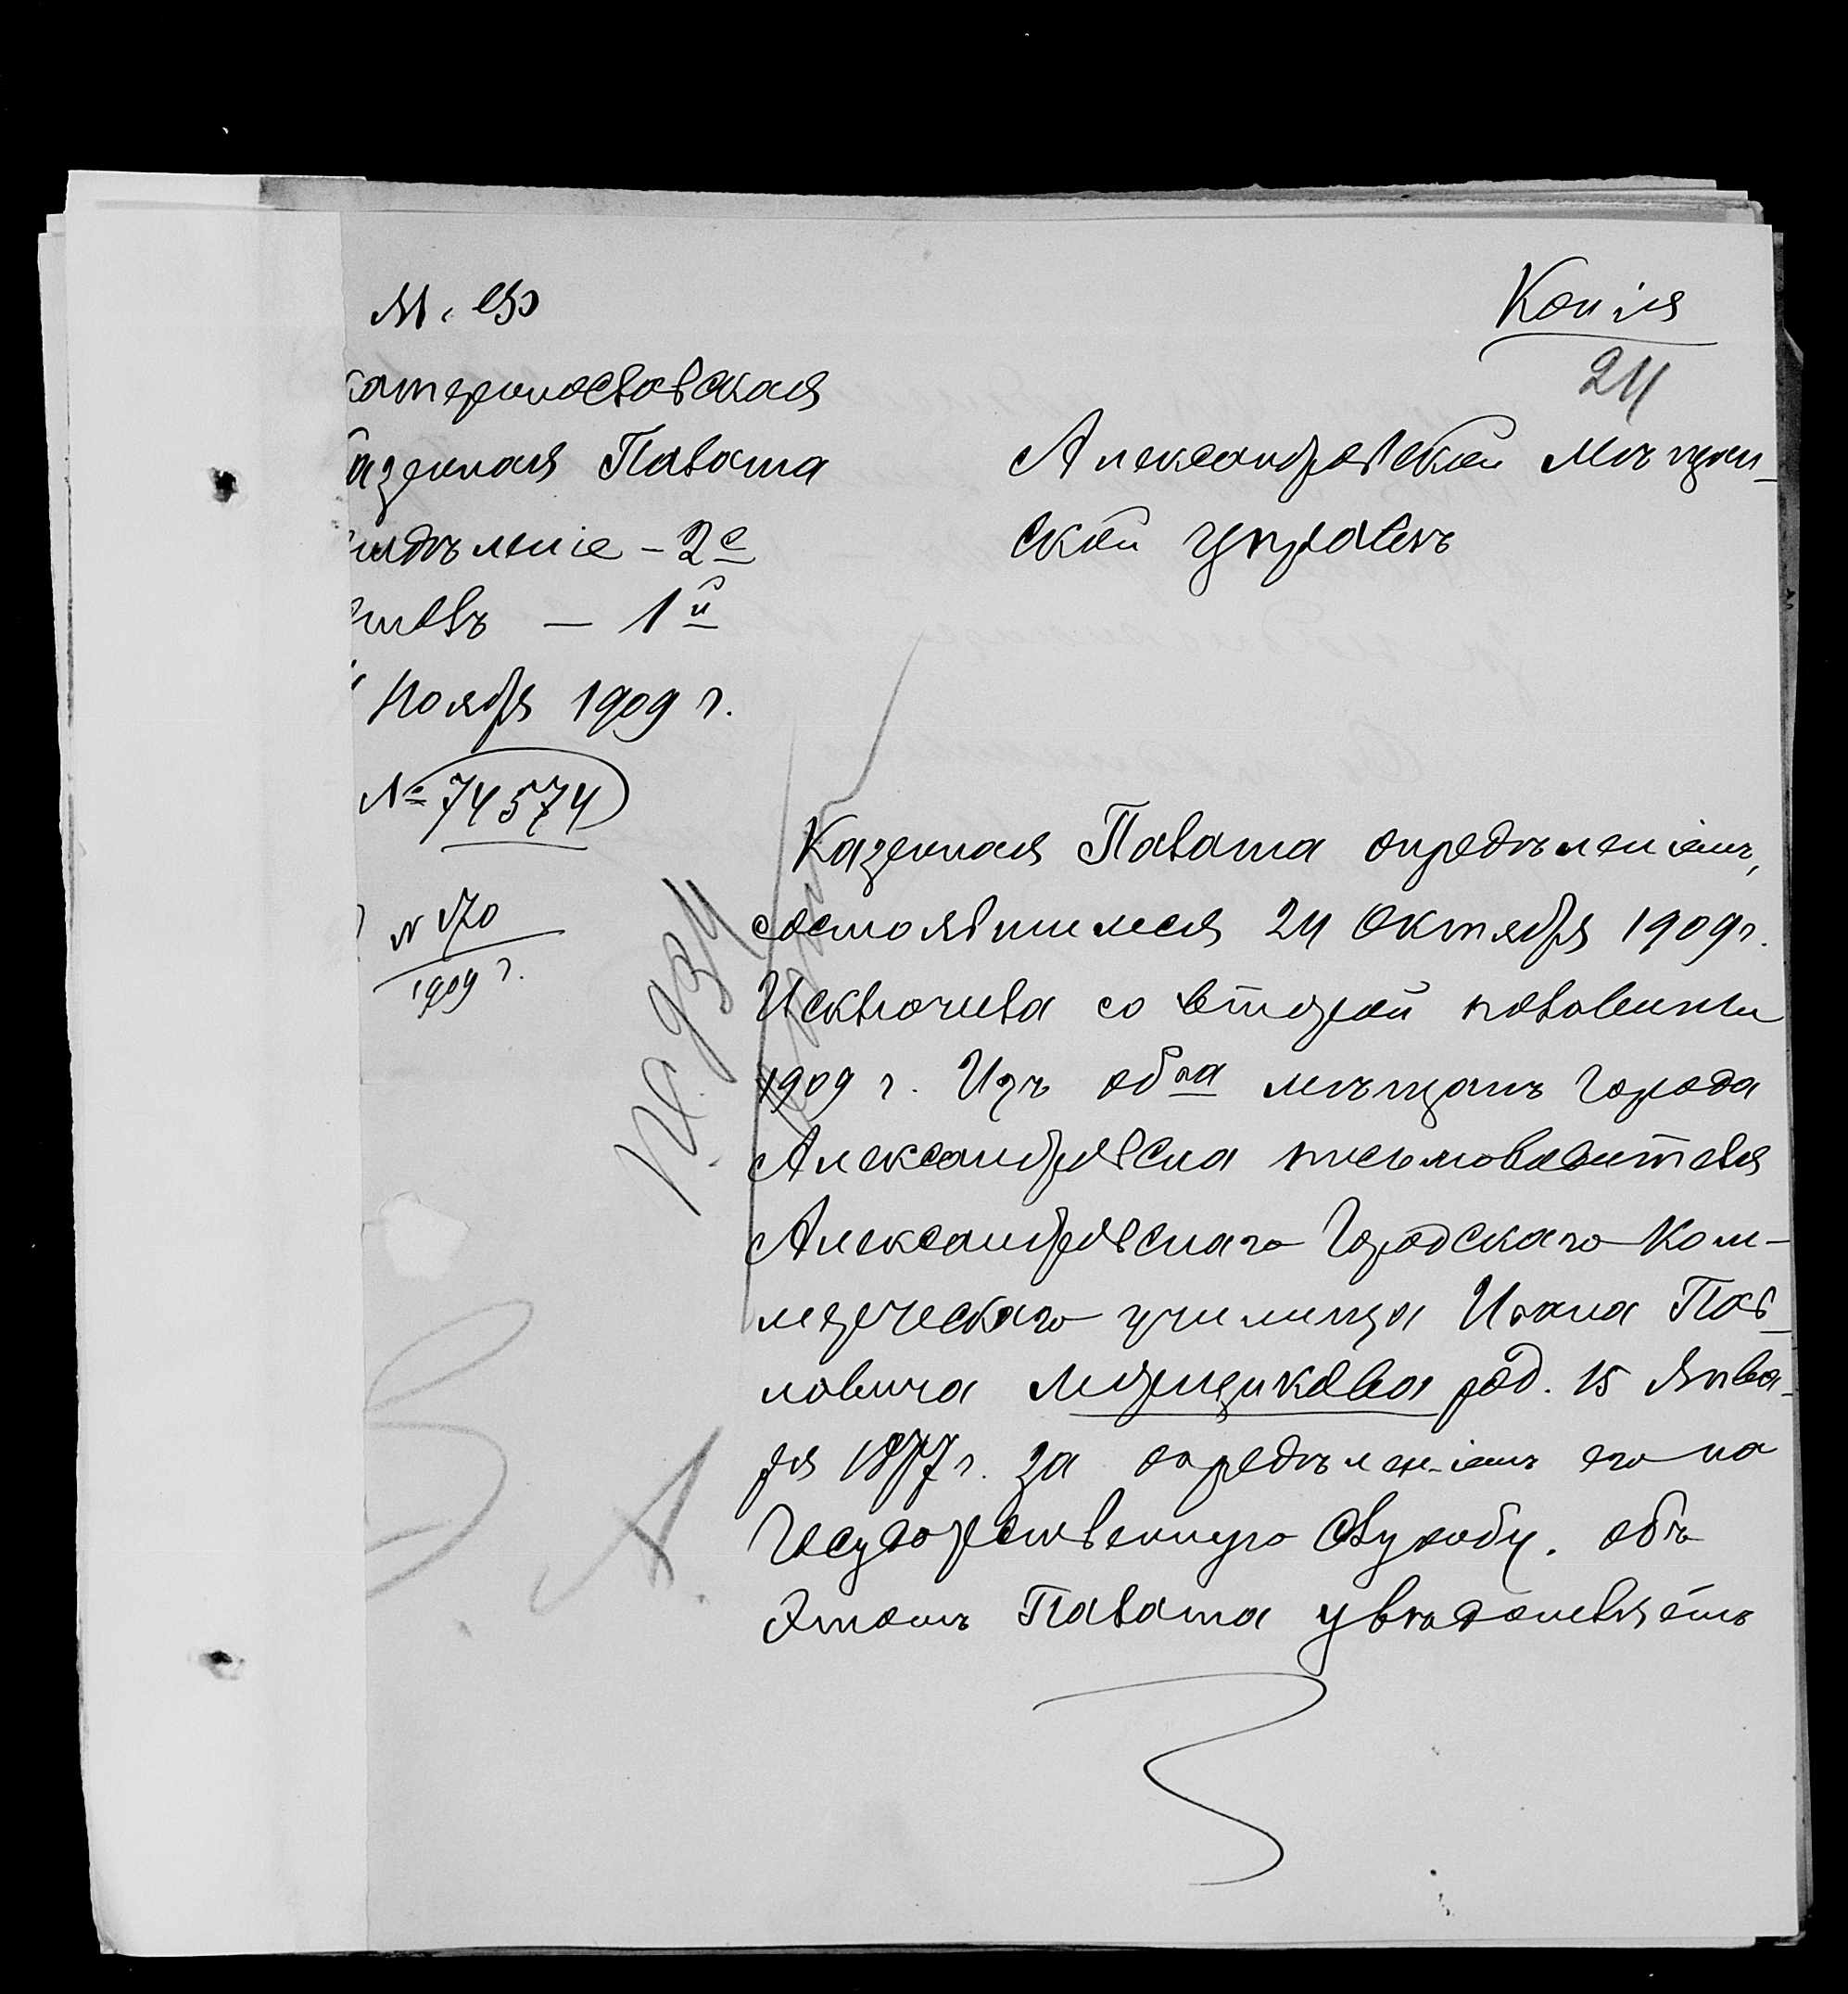 М. Ф.
катеринославская
азенная Палата
тдѣленіе - 2е
толъ — 1й
Ноября 1909 г.
№ 74574
№ 170
1909 г.
Копія
24
Александровской Мѣщан-
ской управѣ
Казенная Палата опредѣленіемъ,
состоявшимся 24 Октября 1909 г.
Исключила со второй половины
1909 г. Изъ об-ва мѣщанъ города
Александровска письмоводителя
Александровскаго Городскаго Ком-
мерческаго училища Ивана Пав-
ловича Мирщикова род. 15 Янва-
ря 1877 г. за опредѣленіемъ его на
Государственную Службу. объ
Этомъ Палата увѣдомляетъ
А.